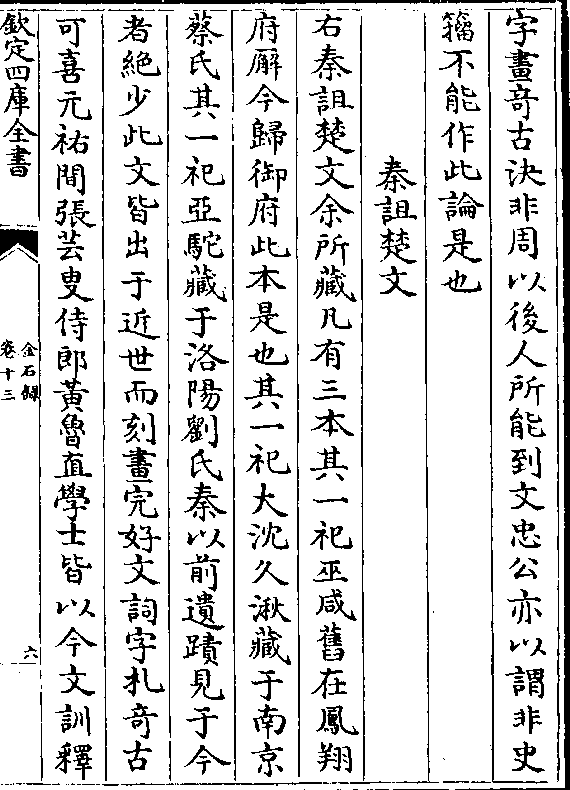 字畫竒古決非周以後人所能到文忠公亦以謂非史
籀不能作此論是也
秦詛楚文
右秦詛楚文余所藏凡有三本其一祀巫咸舊在鳳翔
府廨今歸御府此本是也其一祀大沈久湫藏于南京
蔡氏其一祀亞駝藏于洛陽劉氏秦以前遺蹟見于今
者絶少此文皆出于近世而刻畫完好文詞字札竒古
可喜元祐間張芸叟侍郎黄魯直學士皆以今文訓釋
欽定四庫全書
金石録
卷十三
六